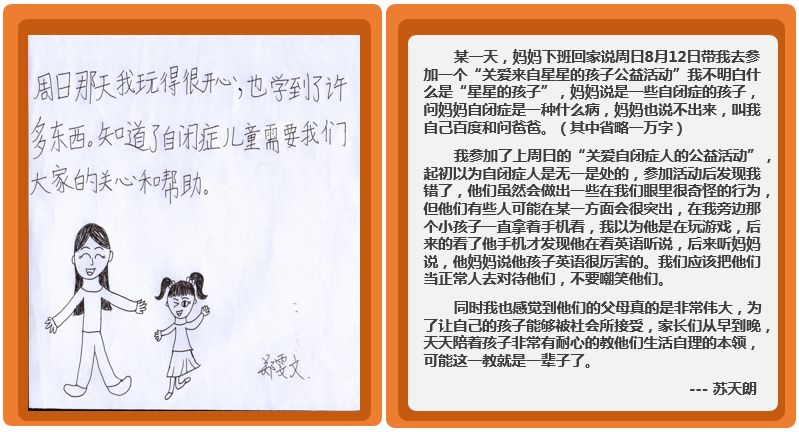 周日那天我玩得很开心,也学到了许
多东西。知道了自闭症儿童需要我们
大家的关心和帮助。
郑雯文.
某一天，妈妈下班回家说周日8月12日带我去参
加一个“关爱来自星星的孩子公益活动”我不明白什
么是“星星的孩子”，妈妈说是一些自闭症的孩子，
问妈妈自闭症是一种什么病，妈妈也说不出来，叫我
自己百度和问爸爸。（其中省略一万字）
我参加了上周日的“关爱自闭症人的公益活动”，
起初以为自闭症人是无一是处的，参加活动后发现我
错了，他们虽然会做出一些在我们眼里很奇怪的行为，
但他们有些人可能在某一方面会很突出，在我旁边那
个小孩子一直拿着手机看，我以为他是在玩游戏，后
来的看了他手机才发现他在看英语听说，后来听妈妈
说，他妈妈说他孩子英语很厉害的。我们应该把他们
当正常人去对待他们，不要嘲笑他们。
同时我也感觉到他们的父母真的是非常伟大，为
了让自己的孩子能够被社会所接受，家长们从早到晚，
天天陪着孩子非常有耐心的教他们生活自理的本领，
可能这一教就是一辈子了。
--- 苏天朗